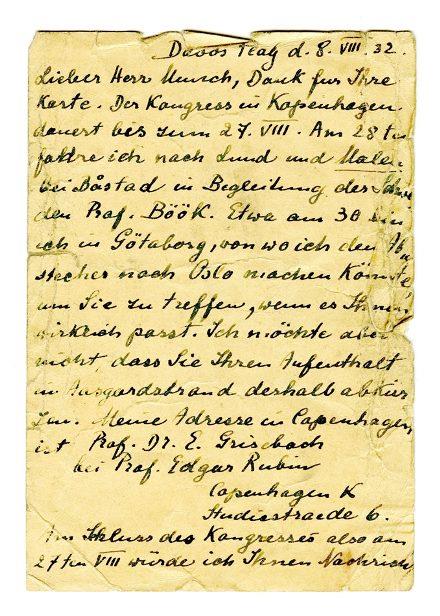 Davos Platz d. 8. VIII. 32.
Lieber Herr Munch, Dank für Ihre
Karte. Der Kongress in Kopenhagen
dauert bis zum 27. VIII. Am 28 ten
fahre ich nach Lund und Malen
bei Båstad in Begleitung des
den Prof. Böök. Etwa am 30 bin
ich in Götaborg, von wo ich den Ab
stecher nach Oslo machen könnte
um Sie zu treffen, wenn es Ihnen
wirklich passt. Ich möchte aber
nicht, dass Sie Ihren Aufenthalt
in Aasgardstrand deshalb abkür
zen. Meine Adresse in Copenhagen
ist Prof. Dr. E. Grisebach
bei Prof. Edgar Rubin
Copenhagen K
Studiestraede 6.
Am Schluss des Kongresses also am
27 ten VIII würde ich Ihnen Nachricht